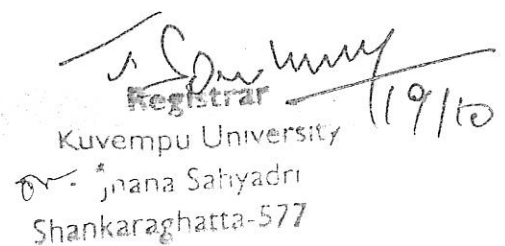 Registrar
19/10
Kuvempu University
Jnana Sahyadri
Shankaraghatta-577